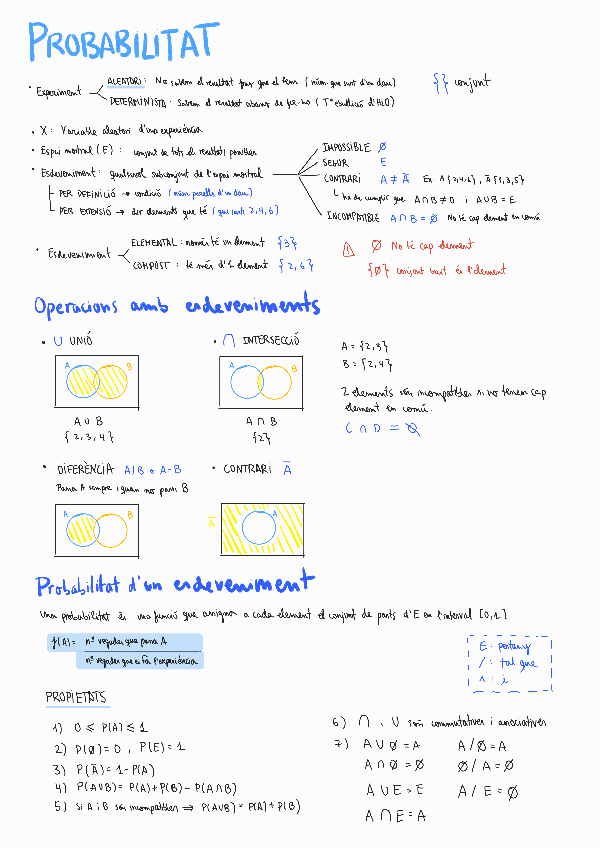 PROBABILITAT
• Experiment
ALEATORI: No sabem el resultat fins que el fem (núm que surt d'un dau)
DETERMINISTA: Sabem el resultat abans de fer-ho (Tª ebullició d'H2O)
{} conjunt
• X: Variable aleatori d'una experiència
• Espai mostral (E): conjunt de tots els resultats possibles
• Esdeveniment: qualsevol subconjunt de l'espai mostral
PER DEFINICIÓ → condició (núm parells d'un dau)
PER EXTENSIÓ → dir elements que té (que surti 2,4,6)
IMPOSSIBLE ∅
SEGUR E
CONTRARI A ≠ A̅ Ex A{2,4,6}, A̅{1,3,5}
ha de complir que A∩B≠0 i A∪B=E
INCOMPATIBLE A∩B=∅ No té cap element en comú
• Esdeveniment
ELEMENTAL: només té un element {3}
COMPOST: té més d'1 element {2,6}
! ∅ No té cap element
{∅} conjunt buit és l'element
Operacions amb esdeveniments
• ∪ UNIÓ
A B
A ∪ B
{2,3,4}
• ∩ INTERSECCIÓ
A B
A ∩ B
{2}
A = {2,3}
B = {2,4}
2 elements són incompatibles si no tenen cap
element en comú.
C ∩ D = ∅
• DIFERÈNCIA A/B o A-B
Passa A sempre i quan no passi B
A B
• CONTRARI A̅
A̅ A
Probabilitat d'un esdeveniment
Una probabilitat és una funció que assigna a cada element el conjunt de parts d'E en l'interval [0,1]
f(A) = nº vegades que passa A
nº vegades que es fa l'experiència
E: pertany
/: tal que
^: i
PROPIETATS
1) 0 ≤ P(A) ≤ 1
2) P(∅)=0, P(E)=1
3) P(A̅)=1-P(A)
4) P(A∪B)=P(A)+P(B)-P(A∩B)
5) Si A i B són incompatibles ⇒ P(A∪B)=P(A)+P(B)
6) ∩, ∪ són commutatives i associatives
7) A∪∅=A A/∅=A
A∩∅=∅ ∅/A=∅
A∪E=E A/E=∅
A∩E=A